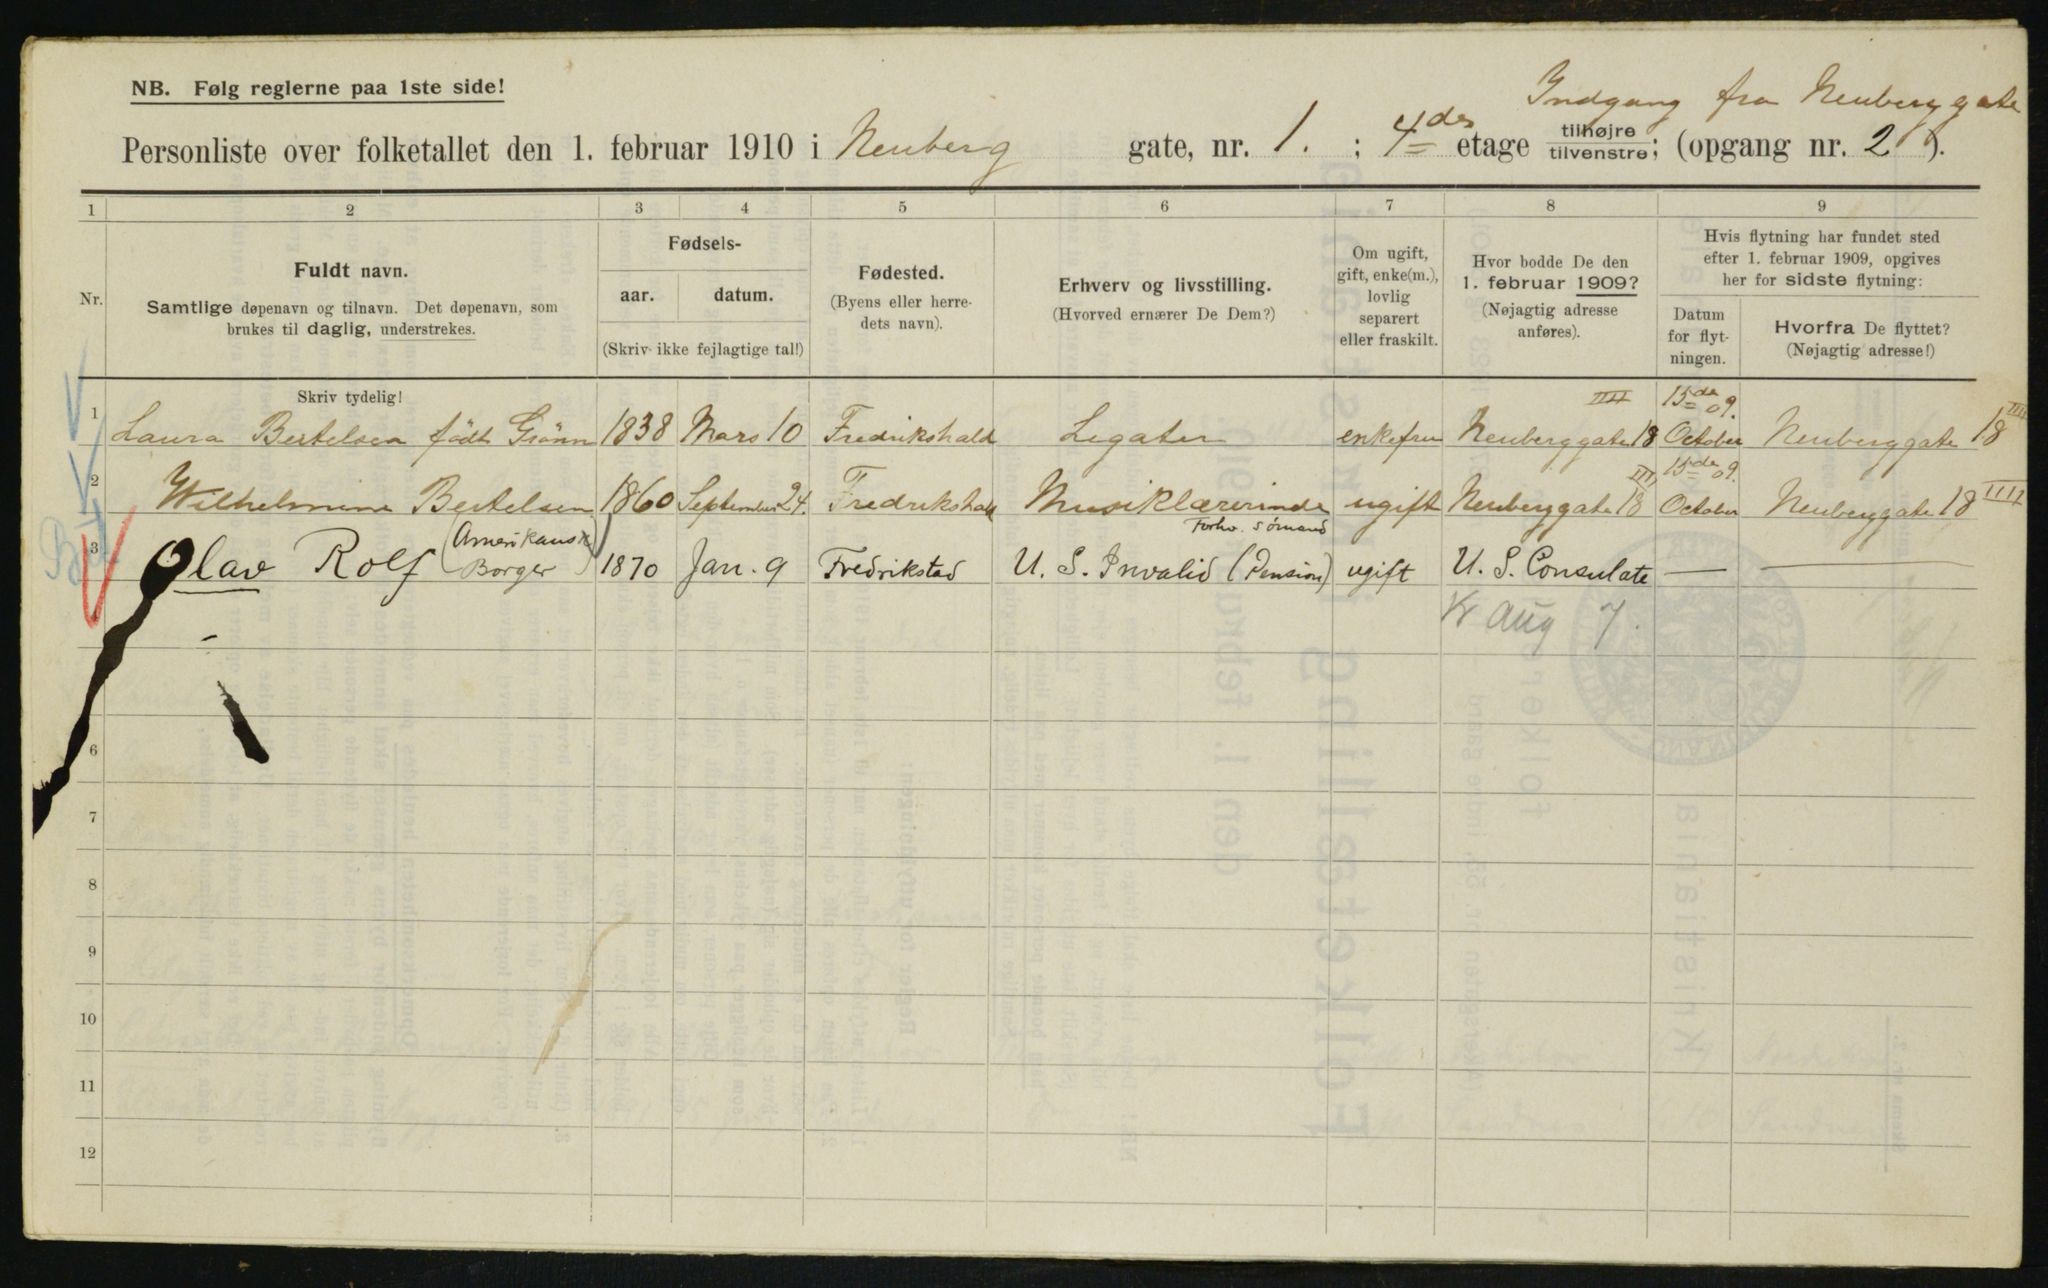 NB. Følg reglerne paa 1ste side!
Indgang fra Neuberggate
Personliste over folketallet den 1. februar 1910 i Neuberg gate, nr. 1. ; 4de etage tilhøjre tilvenstre; (opgang nr. 2).
1 2 3 4 5 6 7 8 9
Nr.
Fuldt navn.
Samtlige døpenavn og tilnavn. Det døpenavn, som
brukes til daglig, understrekes.
Skriv tydelig!
Fødsels-
aar. datum.
(Skriv ikke fejlagtige tal!)
Fødested.
(Byens eller herre-
dets navn).
Erhverv og livsstilling.
(Hvorved ernærer De Dem?)
Om ugift,
gift, enke(m.),
lovlig
separert
eller fraskilt.
Hvor bodde De den
1. februar 1909?
(Nøjagtig adresse
anføres).
Hvis flytning har fundet sted
efter 1. februar 1909, opgives
her for sidste flytning:
Datum
for flyt-
ningen.
Hvorfra De flyttet?
(Nøjagtig adresse!)
1 Laura Bertelsen født Grönn 1838 Mars 10 Fredrikshald Legater enkefru Neuberggate 18 IIII 15de October 09. Neuberggate 18 IIII
2 Wilhelmine Bertelsen 1860 September 24. Fredrikshald Musiklærerinde ugift Neuberggate 18 III 15de October 09. Neuberggate 18 IIII
3 Olav Rolf (Amerikansk Borger) 1870 Jan. 9 Fredrikstad Forhv. Sømand U. S. Invalid (Pension) ugift U. S. Consulate — —
Kr Aug 7.
4
6
7
8
9
10
11
12